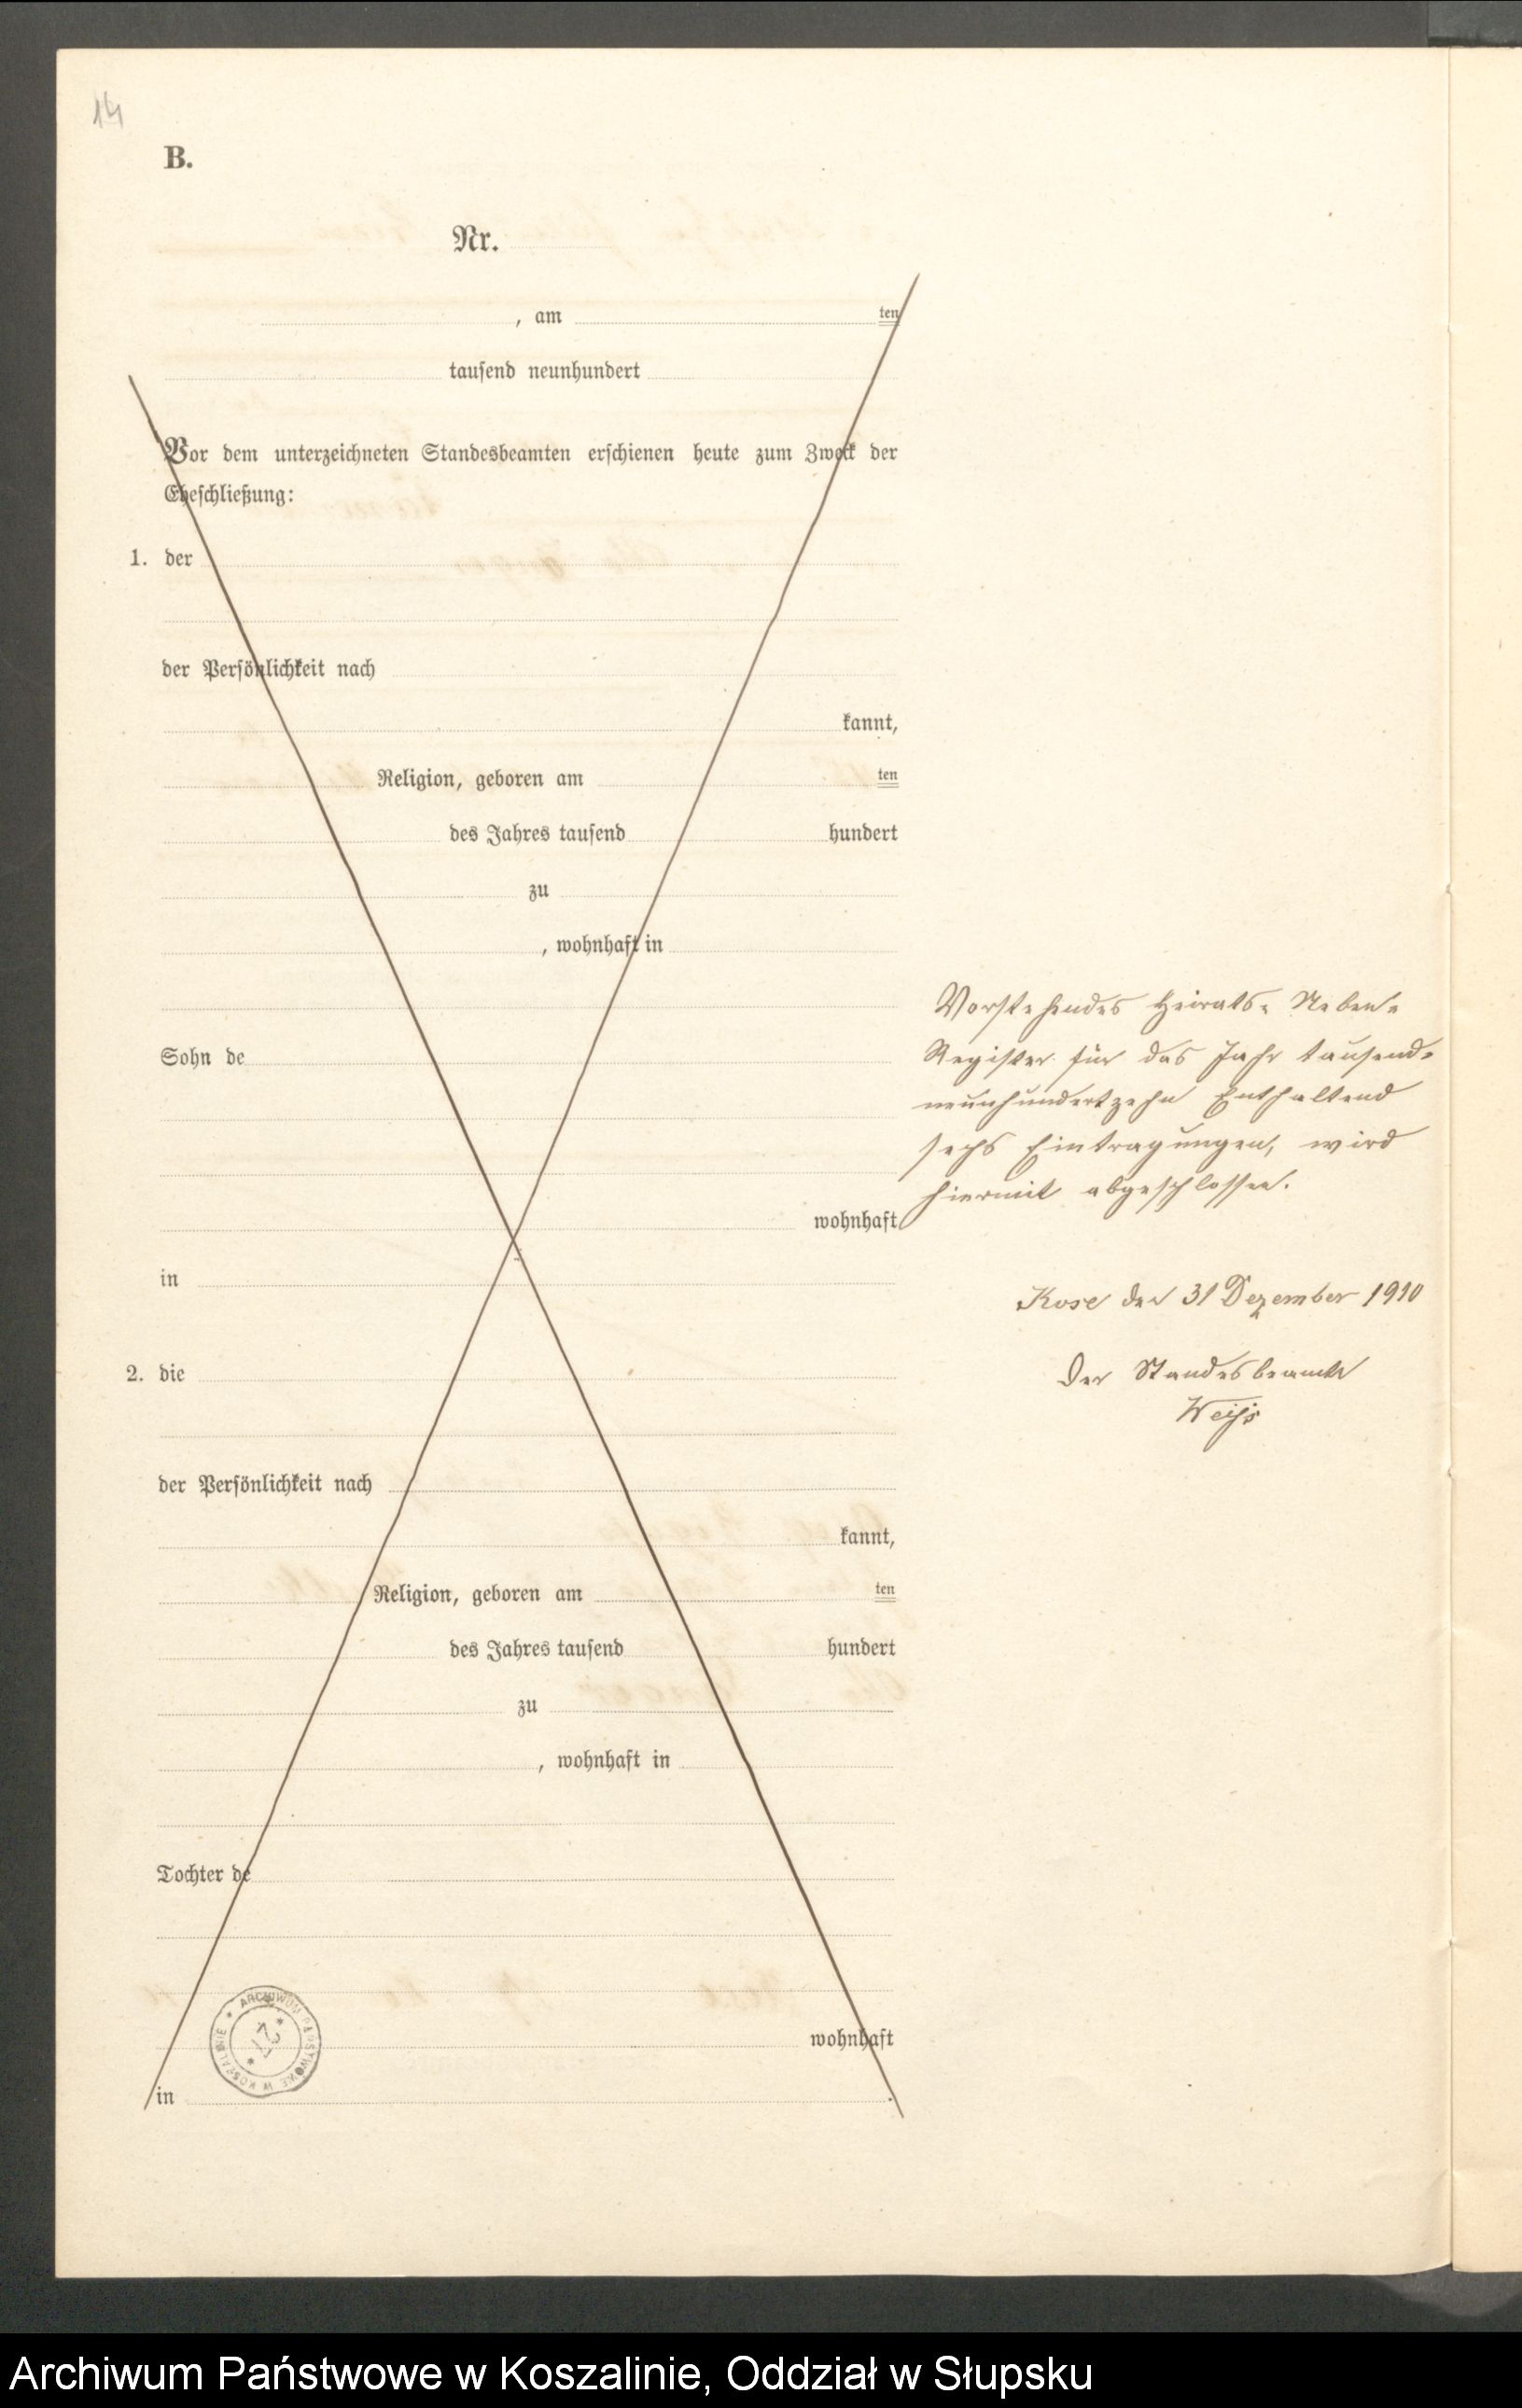 14
B.
Nr.
, am ten
tausend neunhundert
Vor dem unterzeichneten Standesbeamten erschienen heute zum Zweck der
Eheschließung:
1. der
der Persönlichkeit nach
kannt,
Religion, geboren am ten
des Jahres tausend hundert
zu
, wohnhaft in
Sohn de
wohnhaft
in
2. die
der Persönlichkeit nach
kannt,
Religion, geboren am ten
des Jahres tausend hundert
zu
, wohnhaft in
Tochter de
wohnhaft
in .
Vorstehendes Heirats- Neben-
Register für das Jahr tausend-
neunhundertzehn Enthaltend
sechs Eintragungen, wird
hiermit abgeschlossen.
Kose den 31 Dezember 1910
Der Standesbeamte
Weiß
* ARCHIWUM PAŃSTWOWE W KOSZALINIE
Archiwum Państwowe w Koszalinie, Oddział w Słupsku